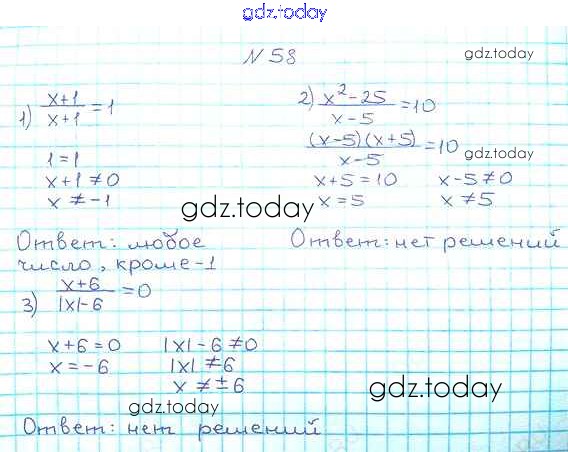 gdz.today
N 58
gdz.today
1) x+1/x+1 = 1
1 = 1
x+1 ≠ 0
x ≠ -1
Ответ: любое
число, кроме -1
2) x²-25/x-5 = 10
(x-5)(x+5)/x-5 = 10
gdz.today
x+5 = 10 x-5 ≠ 0
x = 5 x ≠ 5
gdz.today
Ответ: нет решений
3) x+6/|x|-6 = 0
x+6 = 0 |x|-6 ≠ 0
x = -6 |x| ≠ 6
x ≠ ±6
gdz.today
gdz.today
Ответ: нет решений